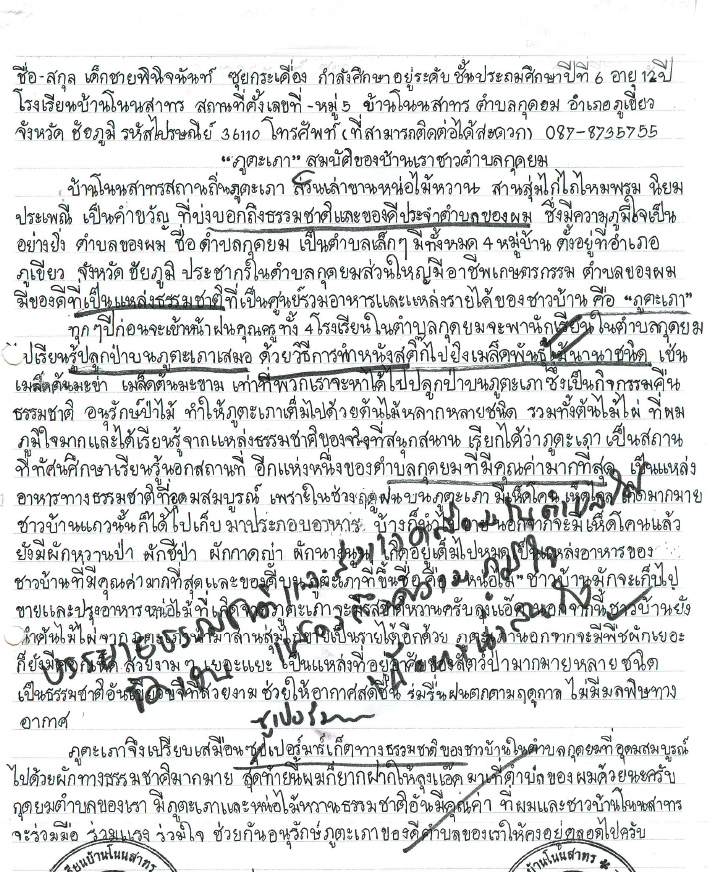 ชื่อ-สกุล เด็กชายพินิจนันท์ ซุยกระเดื่อง กำลังศึกษาอยู่ระดับ ชั้นประถมศึกษาปีที่ 6 อายุ 12 ปี
โรงเรียนบ้านโนนสาทร สถานที่ตั้งเลขที่ - หมู่ 5 บ้านโนนสาทร ตำบลกุดยม อำเภอภูเขียว
จังหวัด ชัยภูมิ รหัสไปรษณีย์ 36110 โทรศัพท์ (ที่สามารถติดต่อได้สะดวก) 087-8735755
"ภูตะเภา" สมบัติของบ้านเราชาวตำบลกุดยม
บ้านโนนสาทรสถานถิ่นภูตะเภา เล่าขานหน่อไม้หวาน สานสุ่มไก่ไถไหมพรม นิยม
ประเพณี เป็นคำขวัญ ที่บ่งบอกถึงธรรมชาติและของดีประจำตำบลของผม ซึ่งมีความภูมิใจเป็น
อย่างยิ่ง ตำบลของผม ชื่อ ตำบลกุดยม เป็นตำบลเล็กๆ มีทั้งหมด 4 หมู่บ้าน ตั้งอยู่ที่อำเภอ
ภูเขียว จังหวัด ชัยภูมิ ประชากรในตำบลกุดยมส่วนใหญ่มีอาชีพเกษตรกรรม ตำบลของผม
มีของดีที่เป็นแหล่งธรรมชาติที่เป็นศูนย์รวมอาหารและแหล่งรายได้ของชาวบ้าน คือ "ภูตะเภา"
ทุกๆปีก่อนจะเข้าหน้าฝนคุณครูทั้ง 4 โรงเรียนในตำบลกุดยมจะพานักเรียนในตำบลกุดยม
ไปเรียนรู้ปลูกป่าบนภูตะเภาเสมอ ด้วยวิธีการทำหนังสติ๊กไปยิงเมล็ดพันธุ์ไม้นานาชนิด เช่น
เมล็ดต้นมะข่า เมล็ดต้นมะขาม เท่าที่พวกเราจะหาได้ไปปลูกป่าบนภูตะเภา ซึ่งเป็นกิจกรรมคืน
ธรรมชาติ อนุรักษ์ป่าไม้ ทำให้ภูตะเภาเต็มไปด้วยต้นไม้หลากหลายชนิด รวมทั้งต้นไม้ไผ่ ที่ผม
ภูมิใจมากและได้เรียนรู้จากแหล่งธรรมชาติของจริงที่สนุกสนาน เรียกได้ว่าภูตะเภา เป็นสถาน
ที่ทัศนศึกษาเรียนรู้นอกสถานที่ อีกแห่งหนึ่งของตำบลกุดยมที่มีคุณค่ามากที่สุด เป็นแหล่ง
อาหารทางธรรมชาติที่อุดมสมบูรณ์ เพราะในช่วงฤดูฝนบนภูตะเภา มีเห็ดโคน มากมาย
ชาวบ้านแถวนั้นก็ได้ไปเก็บมาประกอบอาหาร บ้างก็นำไป นอกจากจะมีเห็ดโคนแล้ว
ยังมีผักหวานป่า ผักชีป่า ผักกาดญ่า ผักนาง เกิดอยู่เต็มไปหมด เป็นแหล่งอาหารของ
ชาวบ้านที่มีคุณค่ามากที่สุดและของดีบนภูตะเภาที่ขึ้นชื่อ คือ "หน่อไม้" ชาวบ้านมักจะเก็บไป
ขายและปรุงอาหาร หน่อไม้ที่เกิดจากภูตะเภาจะมีรสชาติหวานครับลุงแอ๊ด นอกจากนี้ ชาวบ้านยัง
ต้นไม้ไผ่จาก ภูตะเภา มาสานสุ่ม ขายเป็นรายได้อีกด้วย ภูตะเภานอกจากจะมีพืชผักเยอะ
ก็ยังมี สวยงาม ๆ เยอะแยะ เป็นแหล่งที่อยู่อาศัยของสัตว์ป่ามากมายหลายชนิด
เป็นธรรมชาติอัน ที่สวยงาม ช่วยให้อากาศสดชื่น ร่มรื่น ฝนตกตามฤดูกาล ไม่มีมลพิษทาง
อากาศ
ภูตะเภาจึงเปรียบเสมือนซุปเปอร์มาร์เก็ตทางธรรมชาติของชาวบ้านในตำบลกุดยมที่อุดมสมบูรณ์
ไปด้วยผักทางธรรมชาติมากมาย สุดท้ายนี้ผมก็อยากฝากให้ลุงแอ๊ด มาที่ตำบลของผมด้วยนะครับ
กุดยมตำบลของเรา มีภูตะเภาและหน่อไม้หวานธรรมชาติอันมีคุณค่า ที่ผมและชาวบ้านโนนสาทร
จะร่วมมือ ร่วมแรง ร่วมใจ ช่วยกันอนุรักษ์ภูตะเภาของดีตำบลของเราให้คงอยู่ตลอดไปครับ
บ้านโนนสาทร
บ้านโนนสาทร